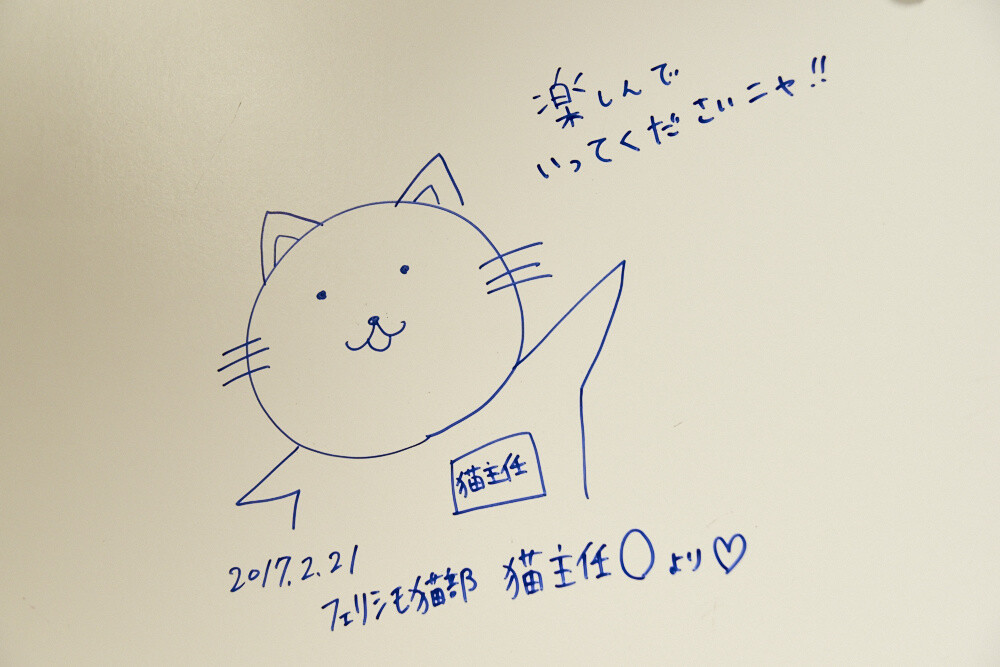 楽しんで
いってくださいニャ!!
猫主任
2017.2.21
フェリシモ猫部 猫主任○より♡